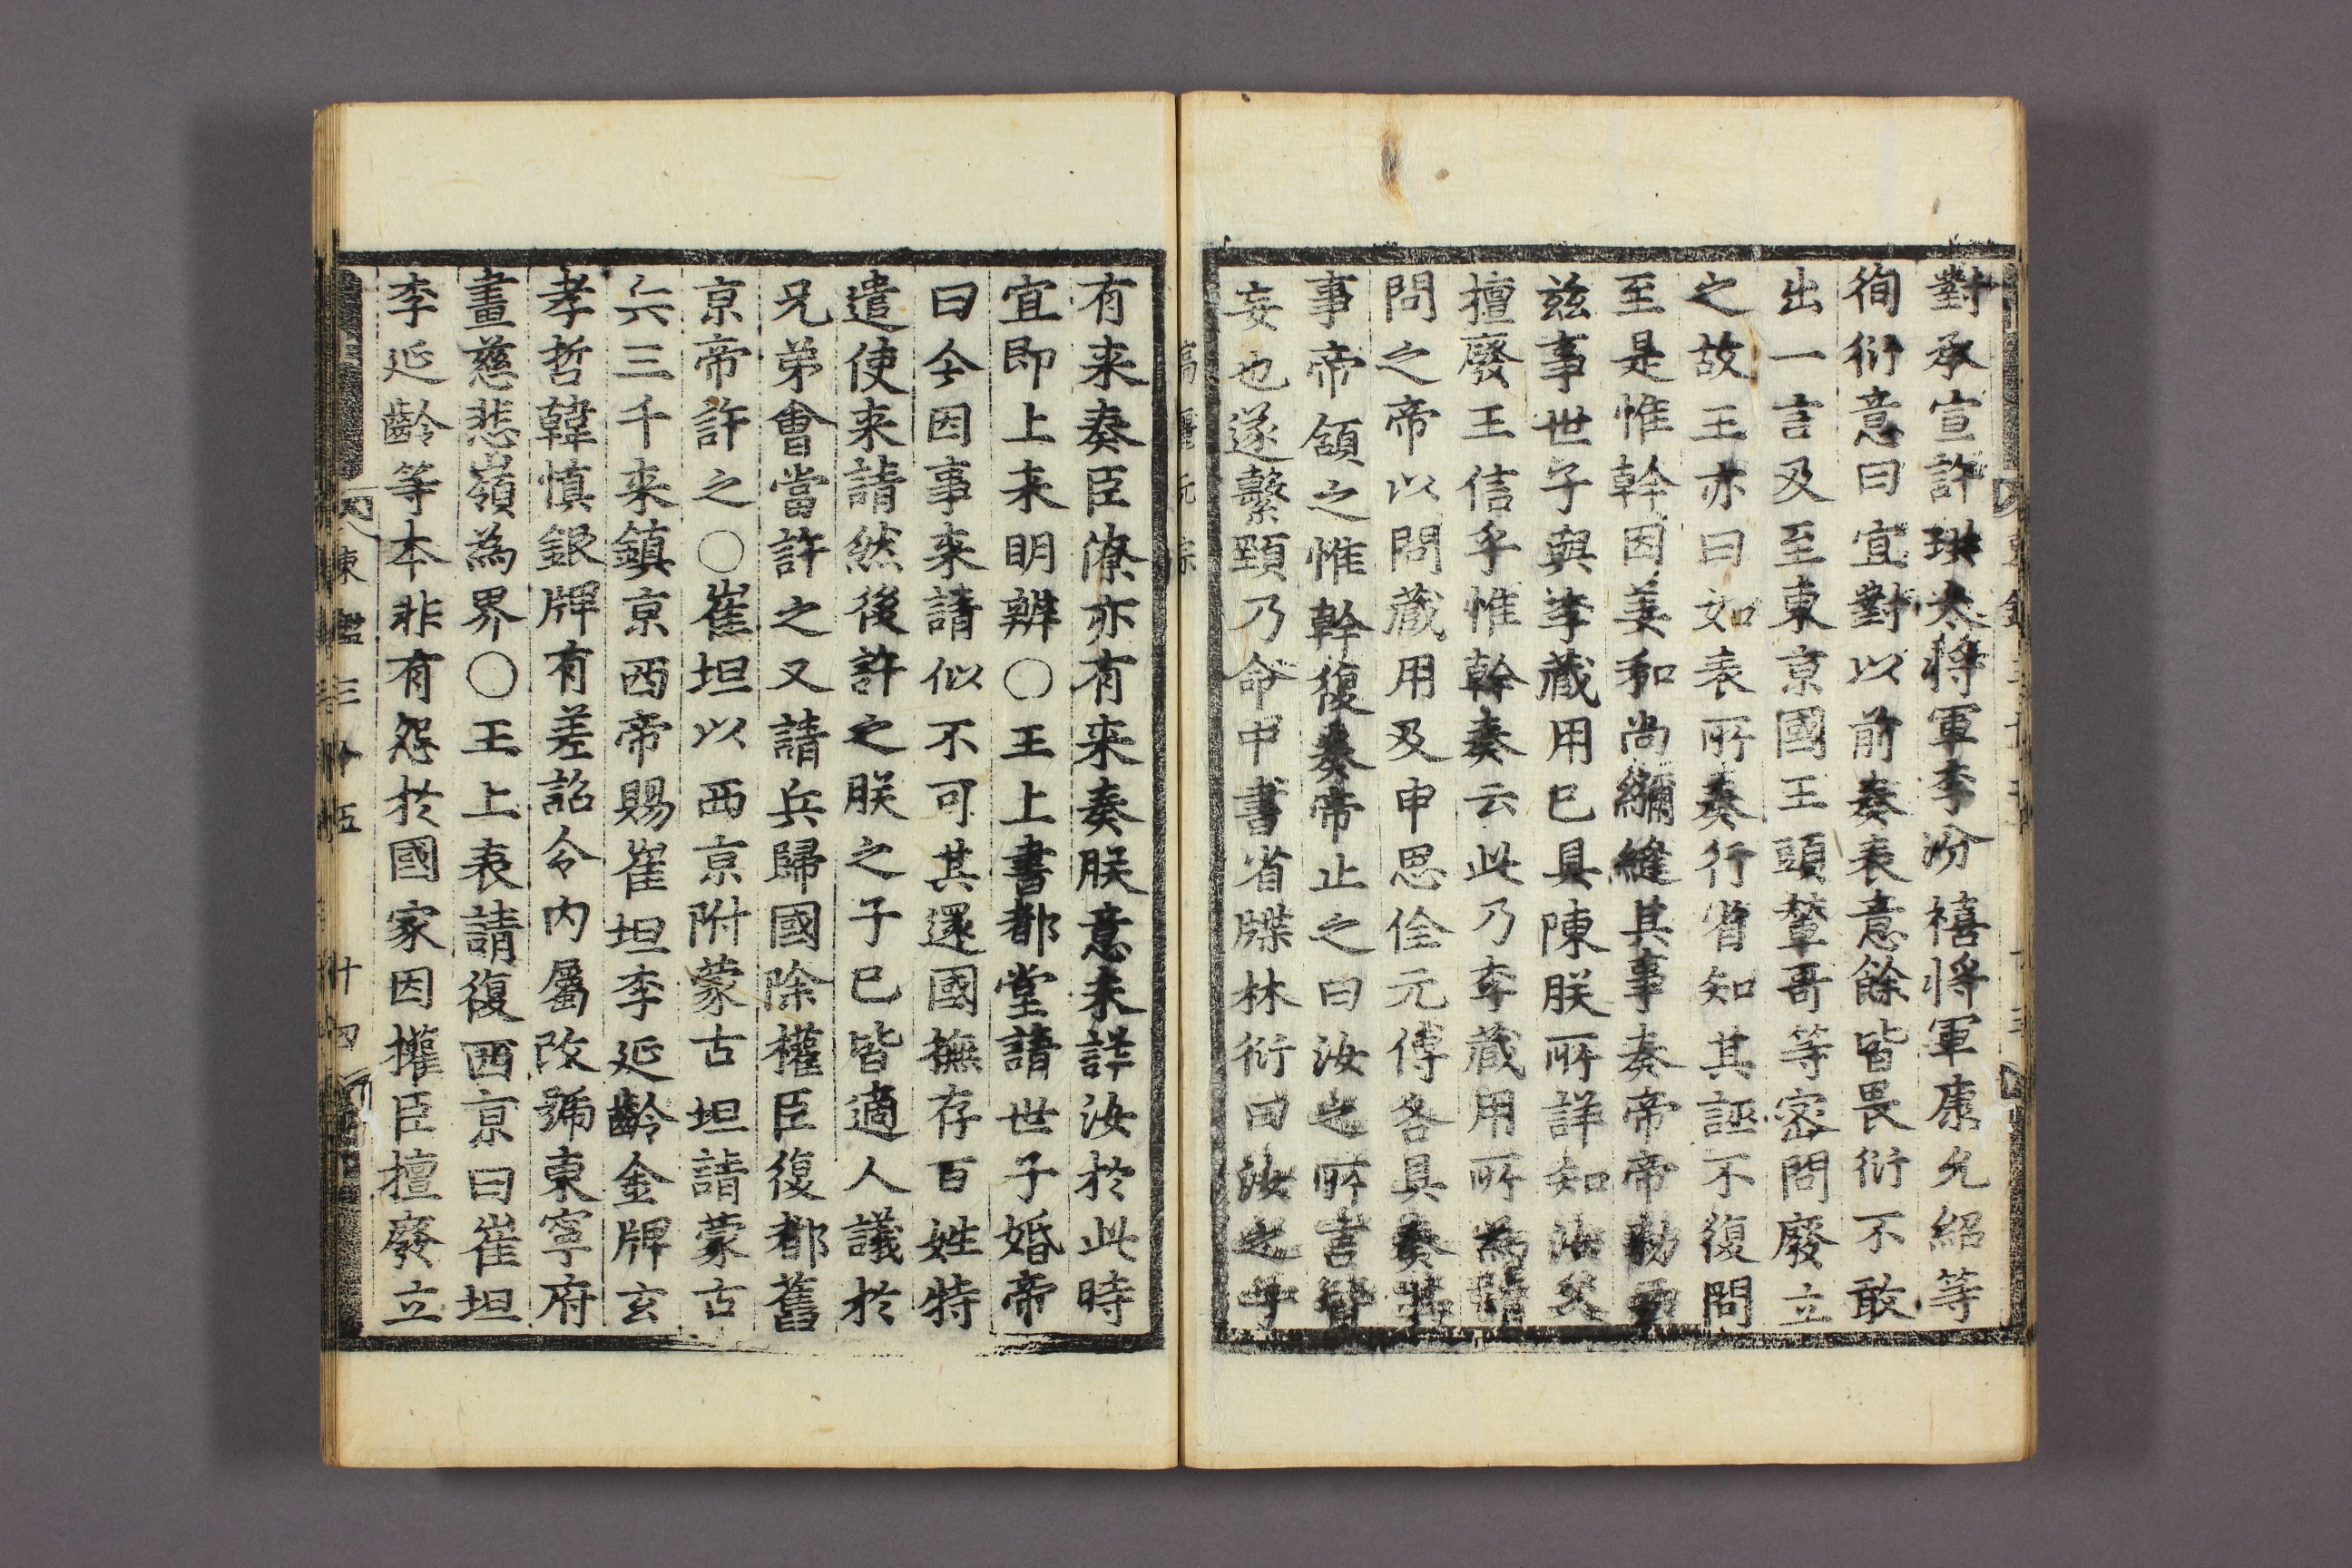 對承宣許珙大將軍李汾禧將軍康允紹等
徇衍意曰宜對以前奏表意餘皆畏衍不敢
出一言及至東京國王頭輦哥等密問廢立
之故王亦曰如表所奏行省知其誣不復問
至是惟幹因姜和尚繃縫其事奏帝帝勑
茲事世子與李藏用已具陳朕所詳知汝
擅廢王信乎惟幹奏云此乃李藏用所為請
問之帝以問藏用及申思佺元傅各具奏其
事帝頷之惟幹復奏帝止之曰汝之所言皆
妄也遂繫頸乃命中書省牒林衍曰汝之
有来奏臣潦亦有来奏朕意未詳汝於此時
宜即上来明辨○王上書都堂請世子婚帝
曰今因事来請似不可其還國撫存百姓特
遣使来請然後許之朕之子已皆適人議於
兄弟會當許之又請兵歸國除權臣復都舊
京帝許之○崔坦以西京附蒙古坦請蒙古
兵三千来鎮京西帝賜崔坦李延齡金牌玄
孝哲韓慎銀牌有差詔令内屬改號東寧府
畫慈悲嶺為界○王上表請復西京曰崔坦
李延齡等本非有怨於國家因權臣擅廢立
東鑑三十五 十四